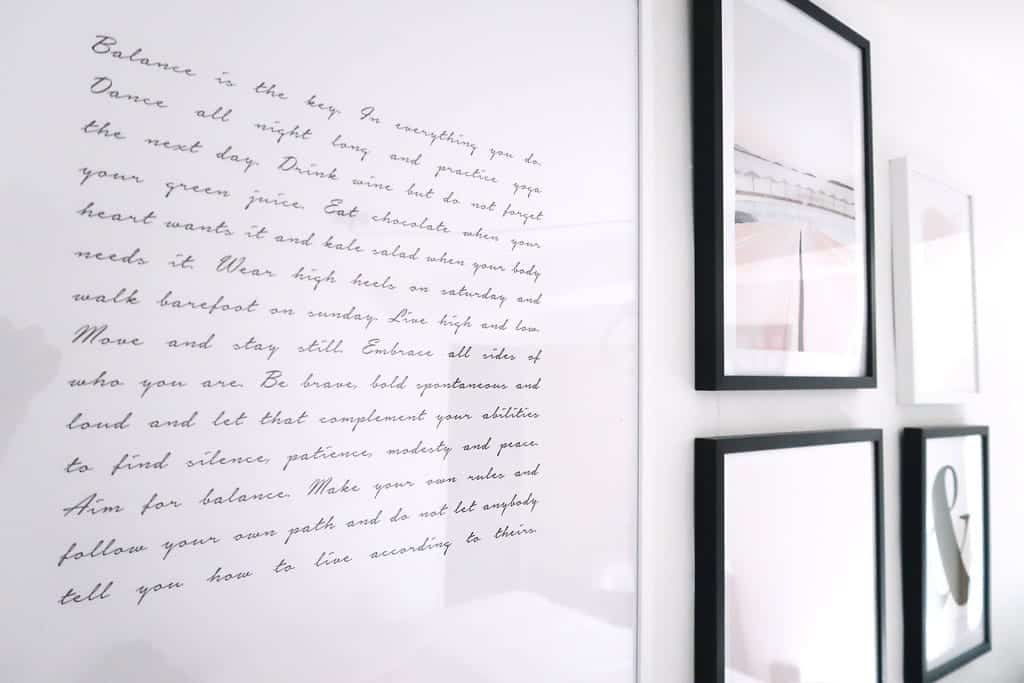 Balance is the key. In everything you do.
Dance all night long and practice yoga
the next day. Drink wine but do not forget
your green juice. Eat chocolate when your
heart wants it and kale salad when your body
needs it. Wear high heels on saturday and
walk barefoot on sunday. Live high and low.
Move and stay still. Embrace all sides of
who you are. Be brave, bold spontaneous and
loud and let that complement your abilities
to find silence, patience, modesty and peace.
Aim for balance. Make your own rules and
follow your own path and do not let anybody
tell you how to live according to theirs.
&